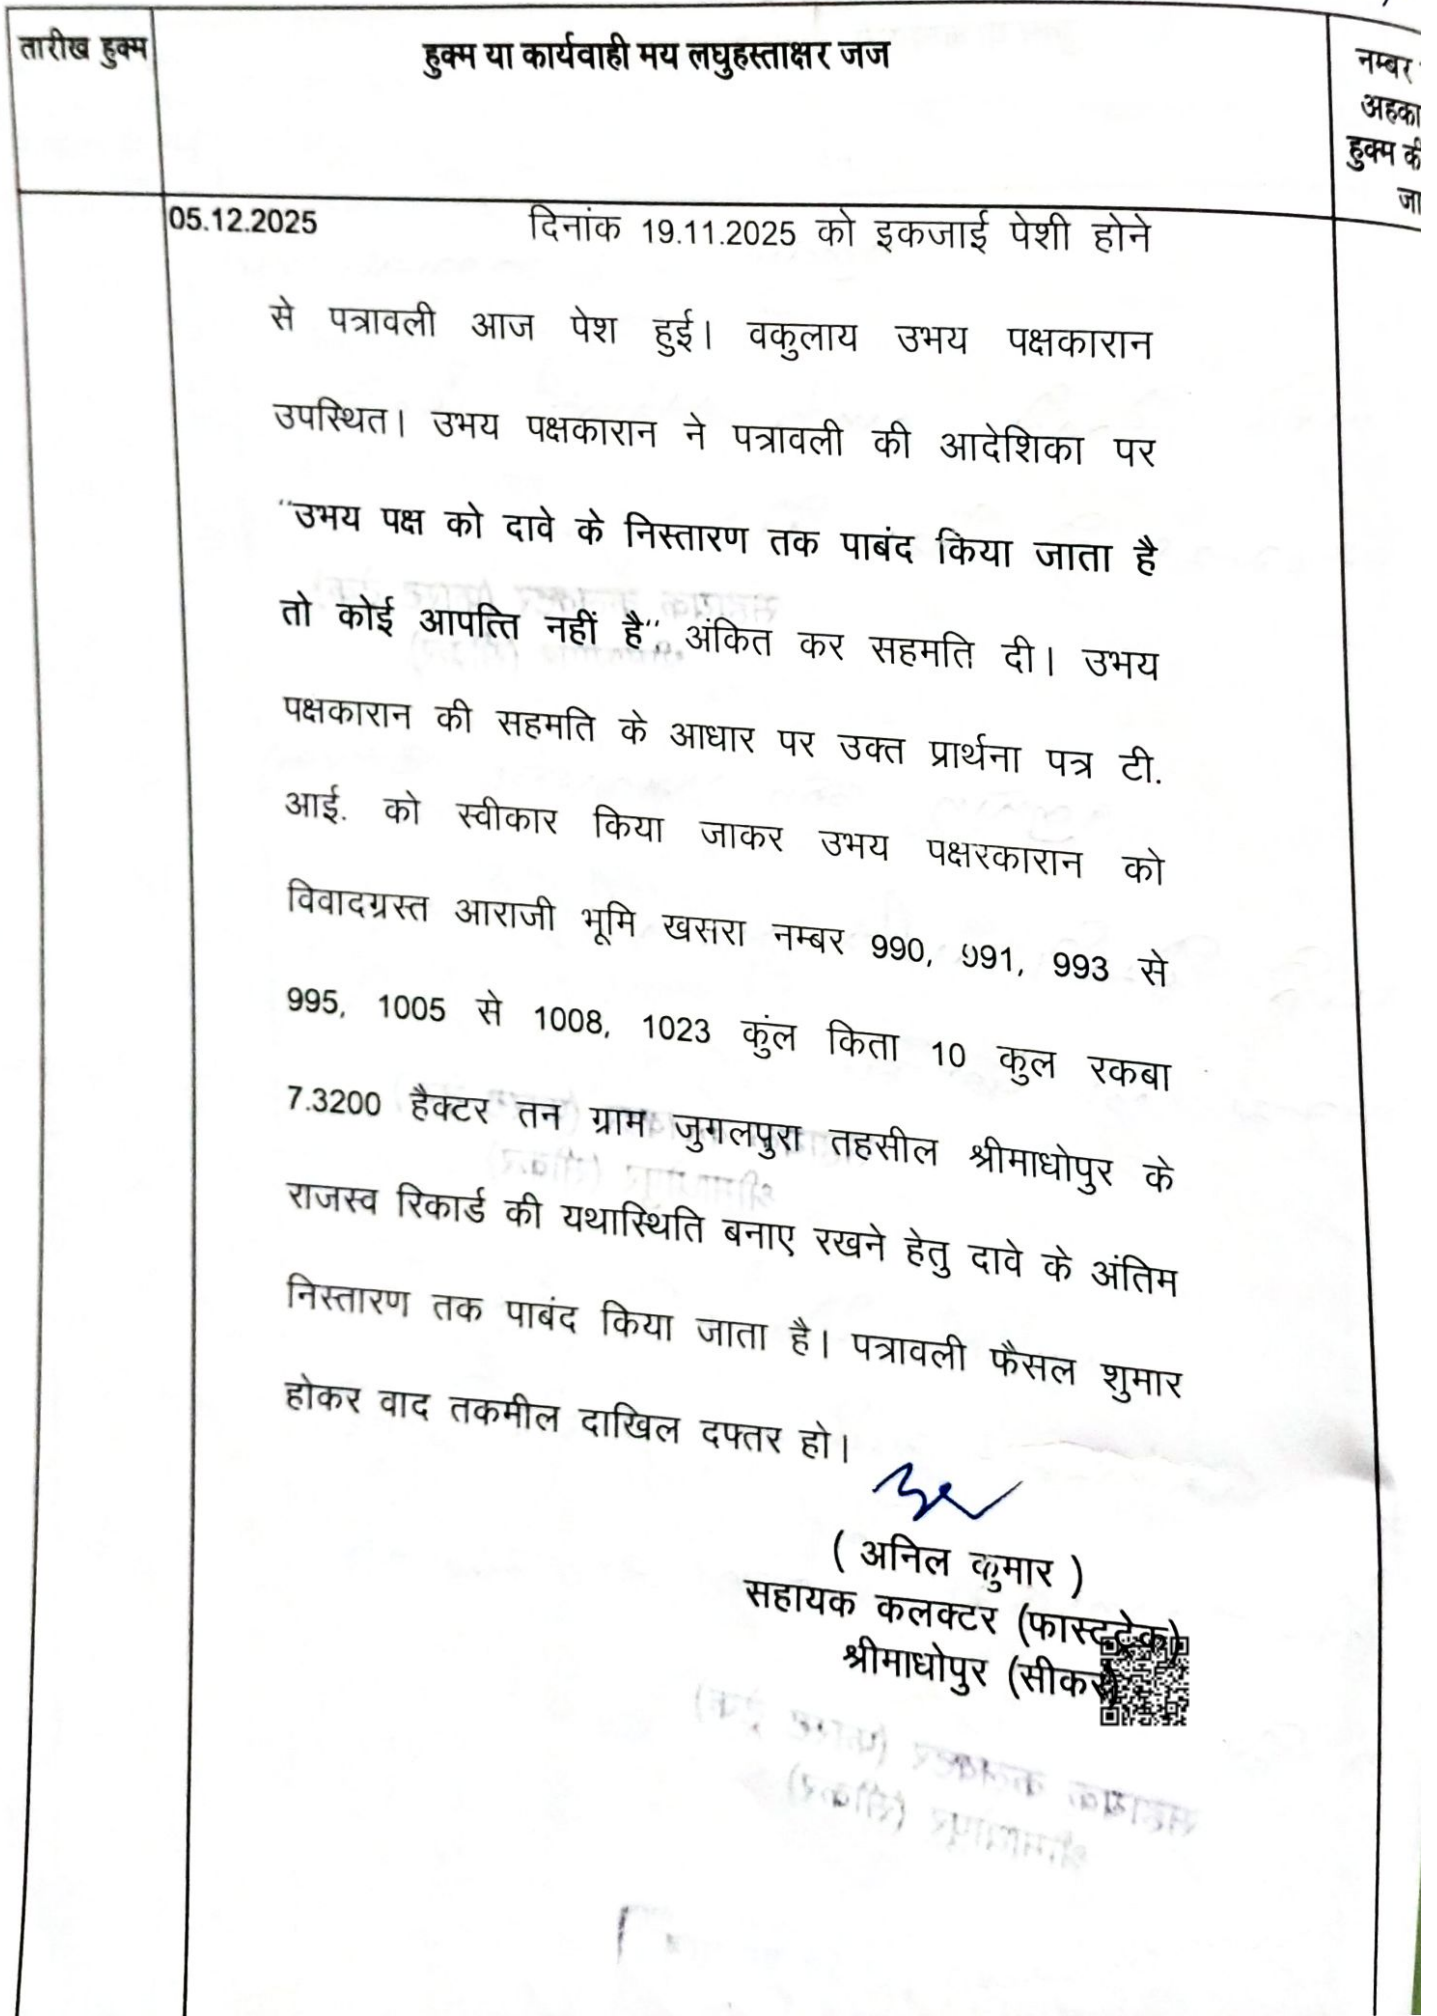 तारीख हुक्म
हुक्म या कार्यवाही मय लघुहस्ताक्षर जज
नम्बर
अहका
हुक्म की
जा
05.12.2025 दिनांक 19.11.2025 को इकजाई पेशी होने
से पत्रावली आज पेश हुई। वकुलाय उभय पक्षकारान
उपस्थित। उभय पक्षकारान ने पत्रावली की आदेशिका पर
"उभय पक्ष को दावे के निस्तारण तक पाबंद किया जाता है
तो कोई आपत्ति नहीं है" अंकित कर सहमति दी। उभय
पक्षकारान की सहमति के आधार पर उक्त प्रार्थना पत्र टी.
आई. को स्वीकार किया जाकर उभय पक्षरकारान को
विवादग्रस्त आराजी भूमि खसरा नम्बर 990, 991, 993 से
995, 1005 से 1008, 1023 कुंल किता 10 कुल रकबा
7.3200 हैक्टर तन ग्राम जुगलपुरा तहसील श्रीमाधोपुर के
राजस्व रिकार्ड की यथास्थिति बनाए रखने हेतु दावे के अंतिम
निस्तारण तक पाबंद किया जाता है। पत्रावली फैसल शुमार
होकर वाद तकमील दाखिल दफ्तर हो।
( अनिल कुमार )
सहायक कलक्टर (फास्टट्रेक)
श्रीमाधोपुर (सीकर)